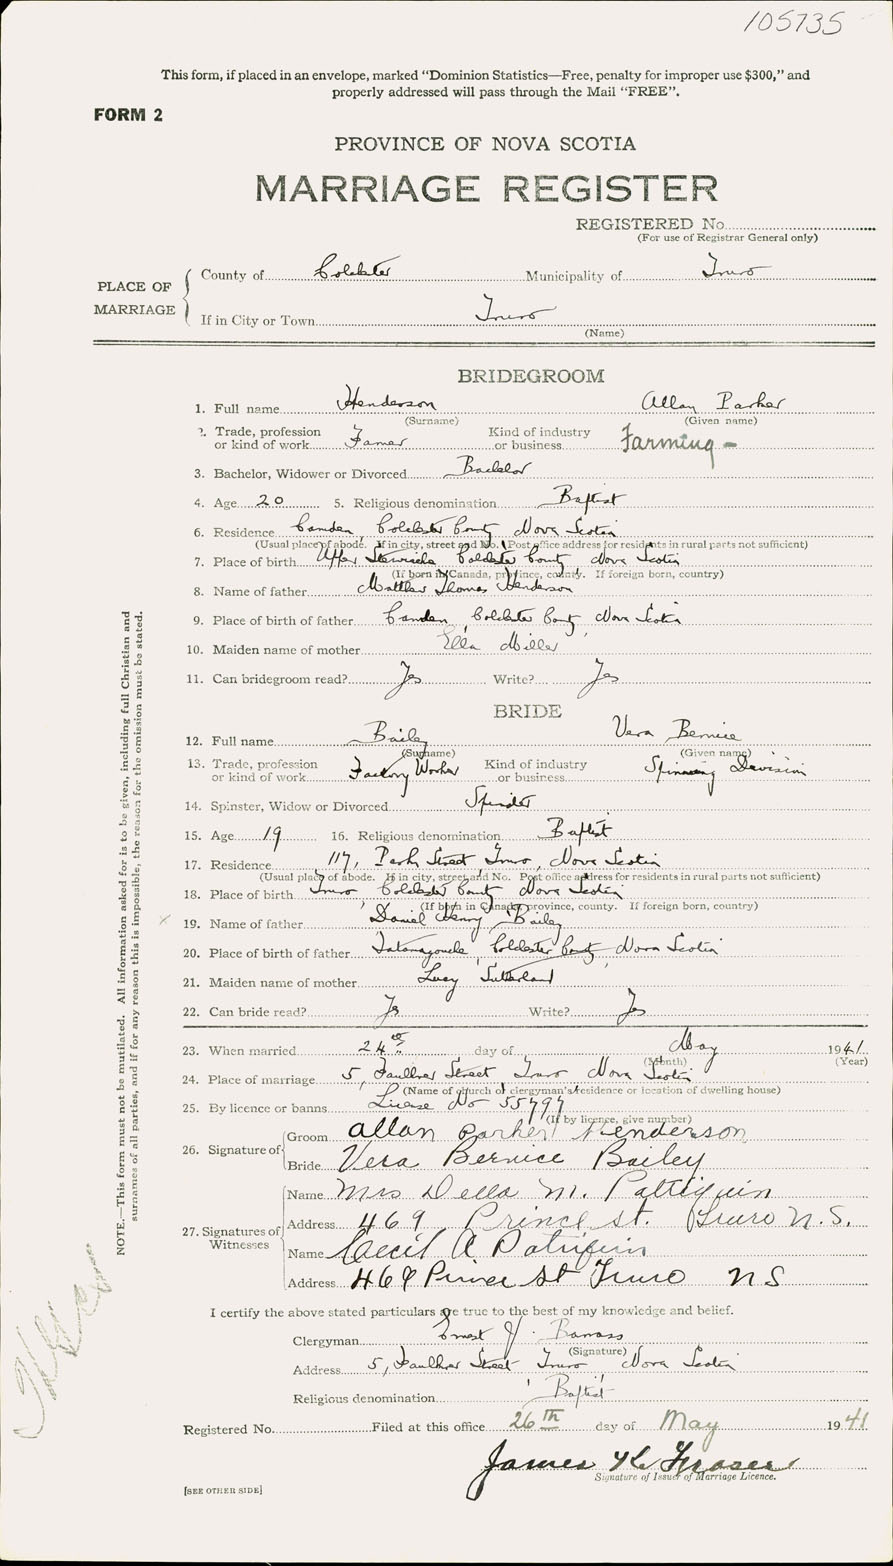 105735
This form, if placed in an envelope, marked “Dominion Statistics—Free, penalty for improper use $300,” and
properly addressed will pass through the Mail “FREE”.
FORM 2
PROVINCE OF NOVA SCOTIA
MARRIAGE REGISTER
REGISTERED No.
(For use of Registrar General only)
PLACE OF MARRIAGE
County of Colchester Municipality of Truro
If in City or Town Truro
(Name)
BRIDEGROOM
1. Full name Henderson Allan Parker
(Surname) (Given name)
2. Trade, profession or kind of work Farmer Kind of industry or business Farming -
3. Bachelor, Widower or Divorced Bachelor
4. Age 20 5. Religious denomination Baptist
6. Residence Camden, Colchester County Nova Scotia
(Usual place of abode. If in city, street and No. Post office address for residents in rural parts not sufficient)
7. Place of birth Upper Stewiacke Colchester County Nova Scotia
(If born in Canada, province, county. If foreign born, country)
8. Name of father Matthew Thomas Henderson
9. Place of birth of father Camden, Colchester County Nova Scotia
10. Maiden name of mother Ella Miller
11. Can bridegroom read? Yes Write? Yes
BRIDE
12. Full name Bailey Vera Bernice
(Surname) (Given name)
13. Trade, profession or kind of work Factory Worker Kind of industry or business Spinning Devision
14. Spinster, Widow or Divorced Spinster
15. Age 19 16. Religious denomination Baptist
17. Residence 117, Park Street Truro, Nova Scotia
(Usual place of abode. If in city, street and No. Post office address for residents in rural parts not sufficient)
18. Place of birth Truro, Colchester County Nova Scotia
(If born in Canada, province, county. If foreign born, country)
19. Name of father Daniel Henry Bailey
20. Place of birth of father Tatamagouche, Colchester County Nova Scotia
21. Maiden name of mother Lucy Sutherland
22. Can bride read? Yes Write? Yes
23. When married 24th day of May 1941
(Month) (Year)
24. Place of marriage 5, Faulkner Street Truro Nova Scotia
(Name of church or clergyman's residence or location of dwelling house)
25. By licence or banns License No 55797
(If by licence, give number)
26. Signature of
Groom Allan Parker Henderson
Bride Vera Bernice Bailey
27. Signatures of Witnesses
Name Mrs Della M. Pattiquin
Address 469 Prince St. Truro N.S.
Name Cecil A Patriquin
Address 469 Prince St Truro N S
I certify the above stated particulars are true to the best of my knowledge and belief.
Clergyman Ernest J. Barrass
(Signature)
Address 5, Faulkner Street Truro Nova Scotia
Religious denomination Baptist
Registered No. Filed at this office 26th day of May 1941
James K. Fraser
Signature of Issuer of Marriage Licence.
[SEE OTHER SIDE]
NOTE.—This form must not be mutilated. All information asked for is to be given, including full Christian and
surnames of all parties, and if for any reason this is impossible, the reason for the omission must be stated.